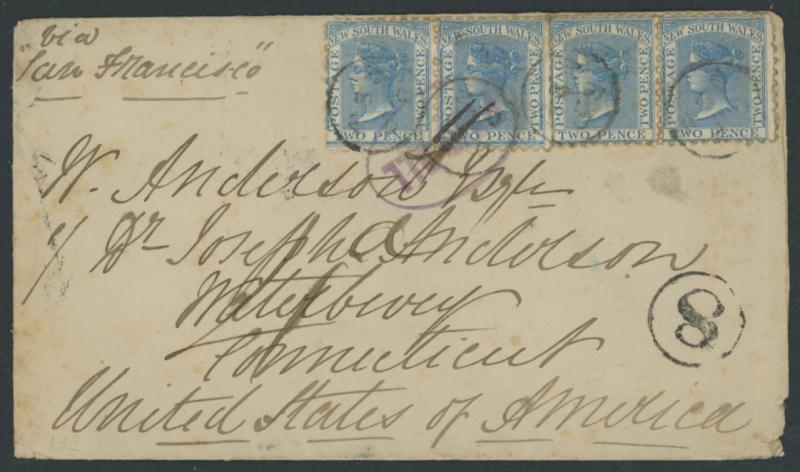 "via
San Francisco"
NEW SOUTH WALES
POSTAGE
TWO PENCE
TWO PENCE
NEW SOUTH WALES
POSTAGE
TWO PENCE
TWO PENCE
NEW SOUTH WALES
POSTAGE
TWO PENCE
TWO PENCE
NEW SOUTH WALES
POSTAGE
TWO PENCE
TWO PENCE
W. Anderson Esqre
c/ Dr Joseph Anderson
Waterbury
Connecticut
United States of America
8